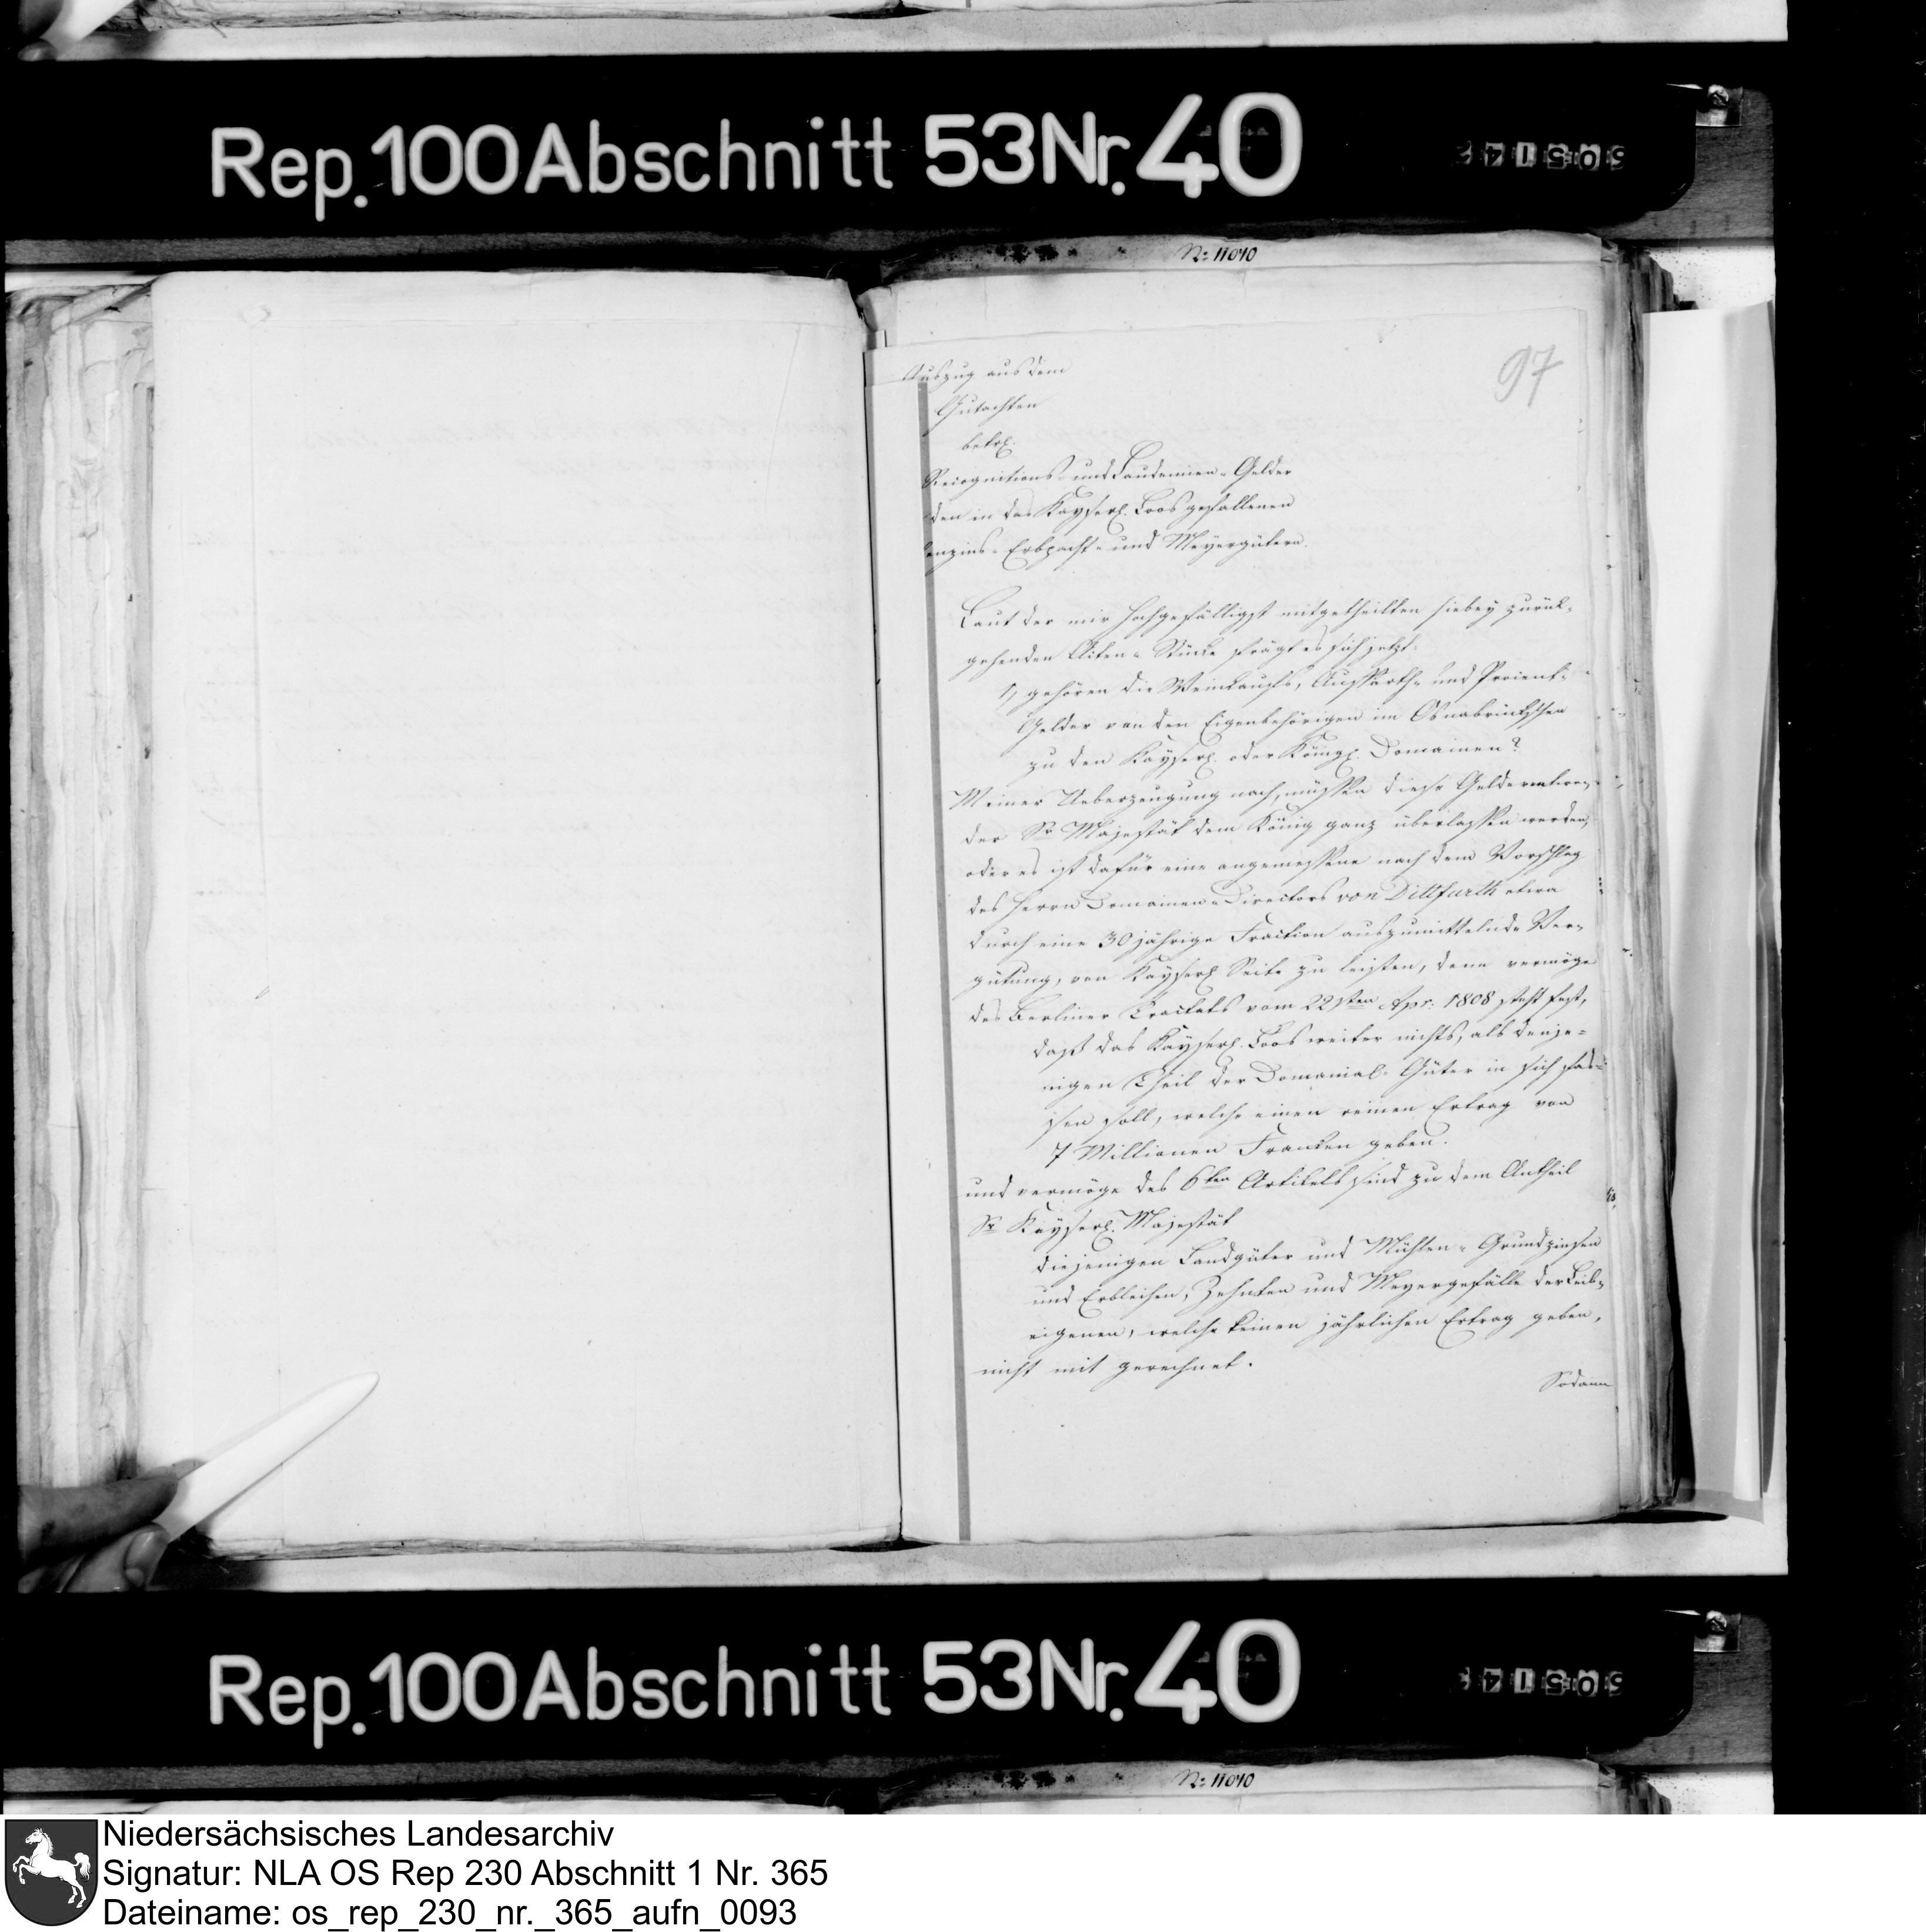 Rep. 100 Abschnitt 53 Nr. 40
N: 11040
97
Auszug aus dem
Gutachten
betrl.
Recognitions- und Laudemien-Gelder
den in das Kayserl. Loos gefallenen
enzins- Erbpacht- und Meyergütern.
Laut der mir hochgefälligst mitgetheilten hiebey zurük-
gehenden Akten-Stücke frägt es sich jetzt:
1, gehören die Weinkaufs, Auffarth- und
Gelder von den Eigenbehörigen im Osnabrückschen
zu den Kayserl. oder Königl. Domainen?
Meiner Ueberzeugung nach, müssen diese Gelder entwe-
der Sr Majestät dem König ganz überlassen werden,
oder es ist dafür eine angemessene nach dem Vorschlag
des Herrn Domainen-Directors von Dittfurth etwa
durch eine 30 jährige Fraction auszumittelnde Ver-
gütung, von Kayserl Seite zu leisten, denn vermöge
des Berliner Tractats vom 22sten Apr: 1808 steht fest,
dass das Kayserl. Loos weiter nichts, als denje-
nigen Theil der Domanial-Güter in sich fas-
sen soll, welche einen reinen Ertrag von
7 Millionen Franken geben.
und vermöge des 6ten Artikels sind zu dem Antheil
Sr Kayserl. Majestät
diejenigen Landgüter und Mühlen-Grundzinsen
und Erbleihen, Zehnten und Meyergefälle der Leib-
eigenen, welche keinen jährlichen Ertrag geben,
nicht mit gerechnet.
Sodann
Rep. 100 Abschnitt 53 Nr. 40
N: 11040
Niedersächsisches Landesarchiv
Signatur: NLA OS Rep 230 Abschnitt 1 Nr. 365
Dateiname: os_rep_230_nr._365_aufn_0093